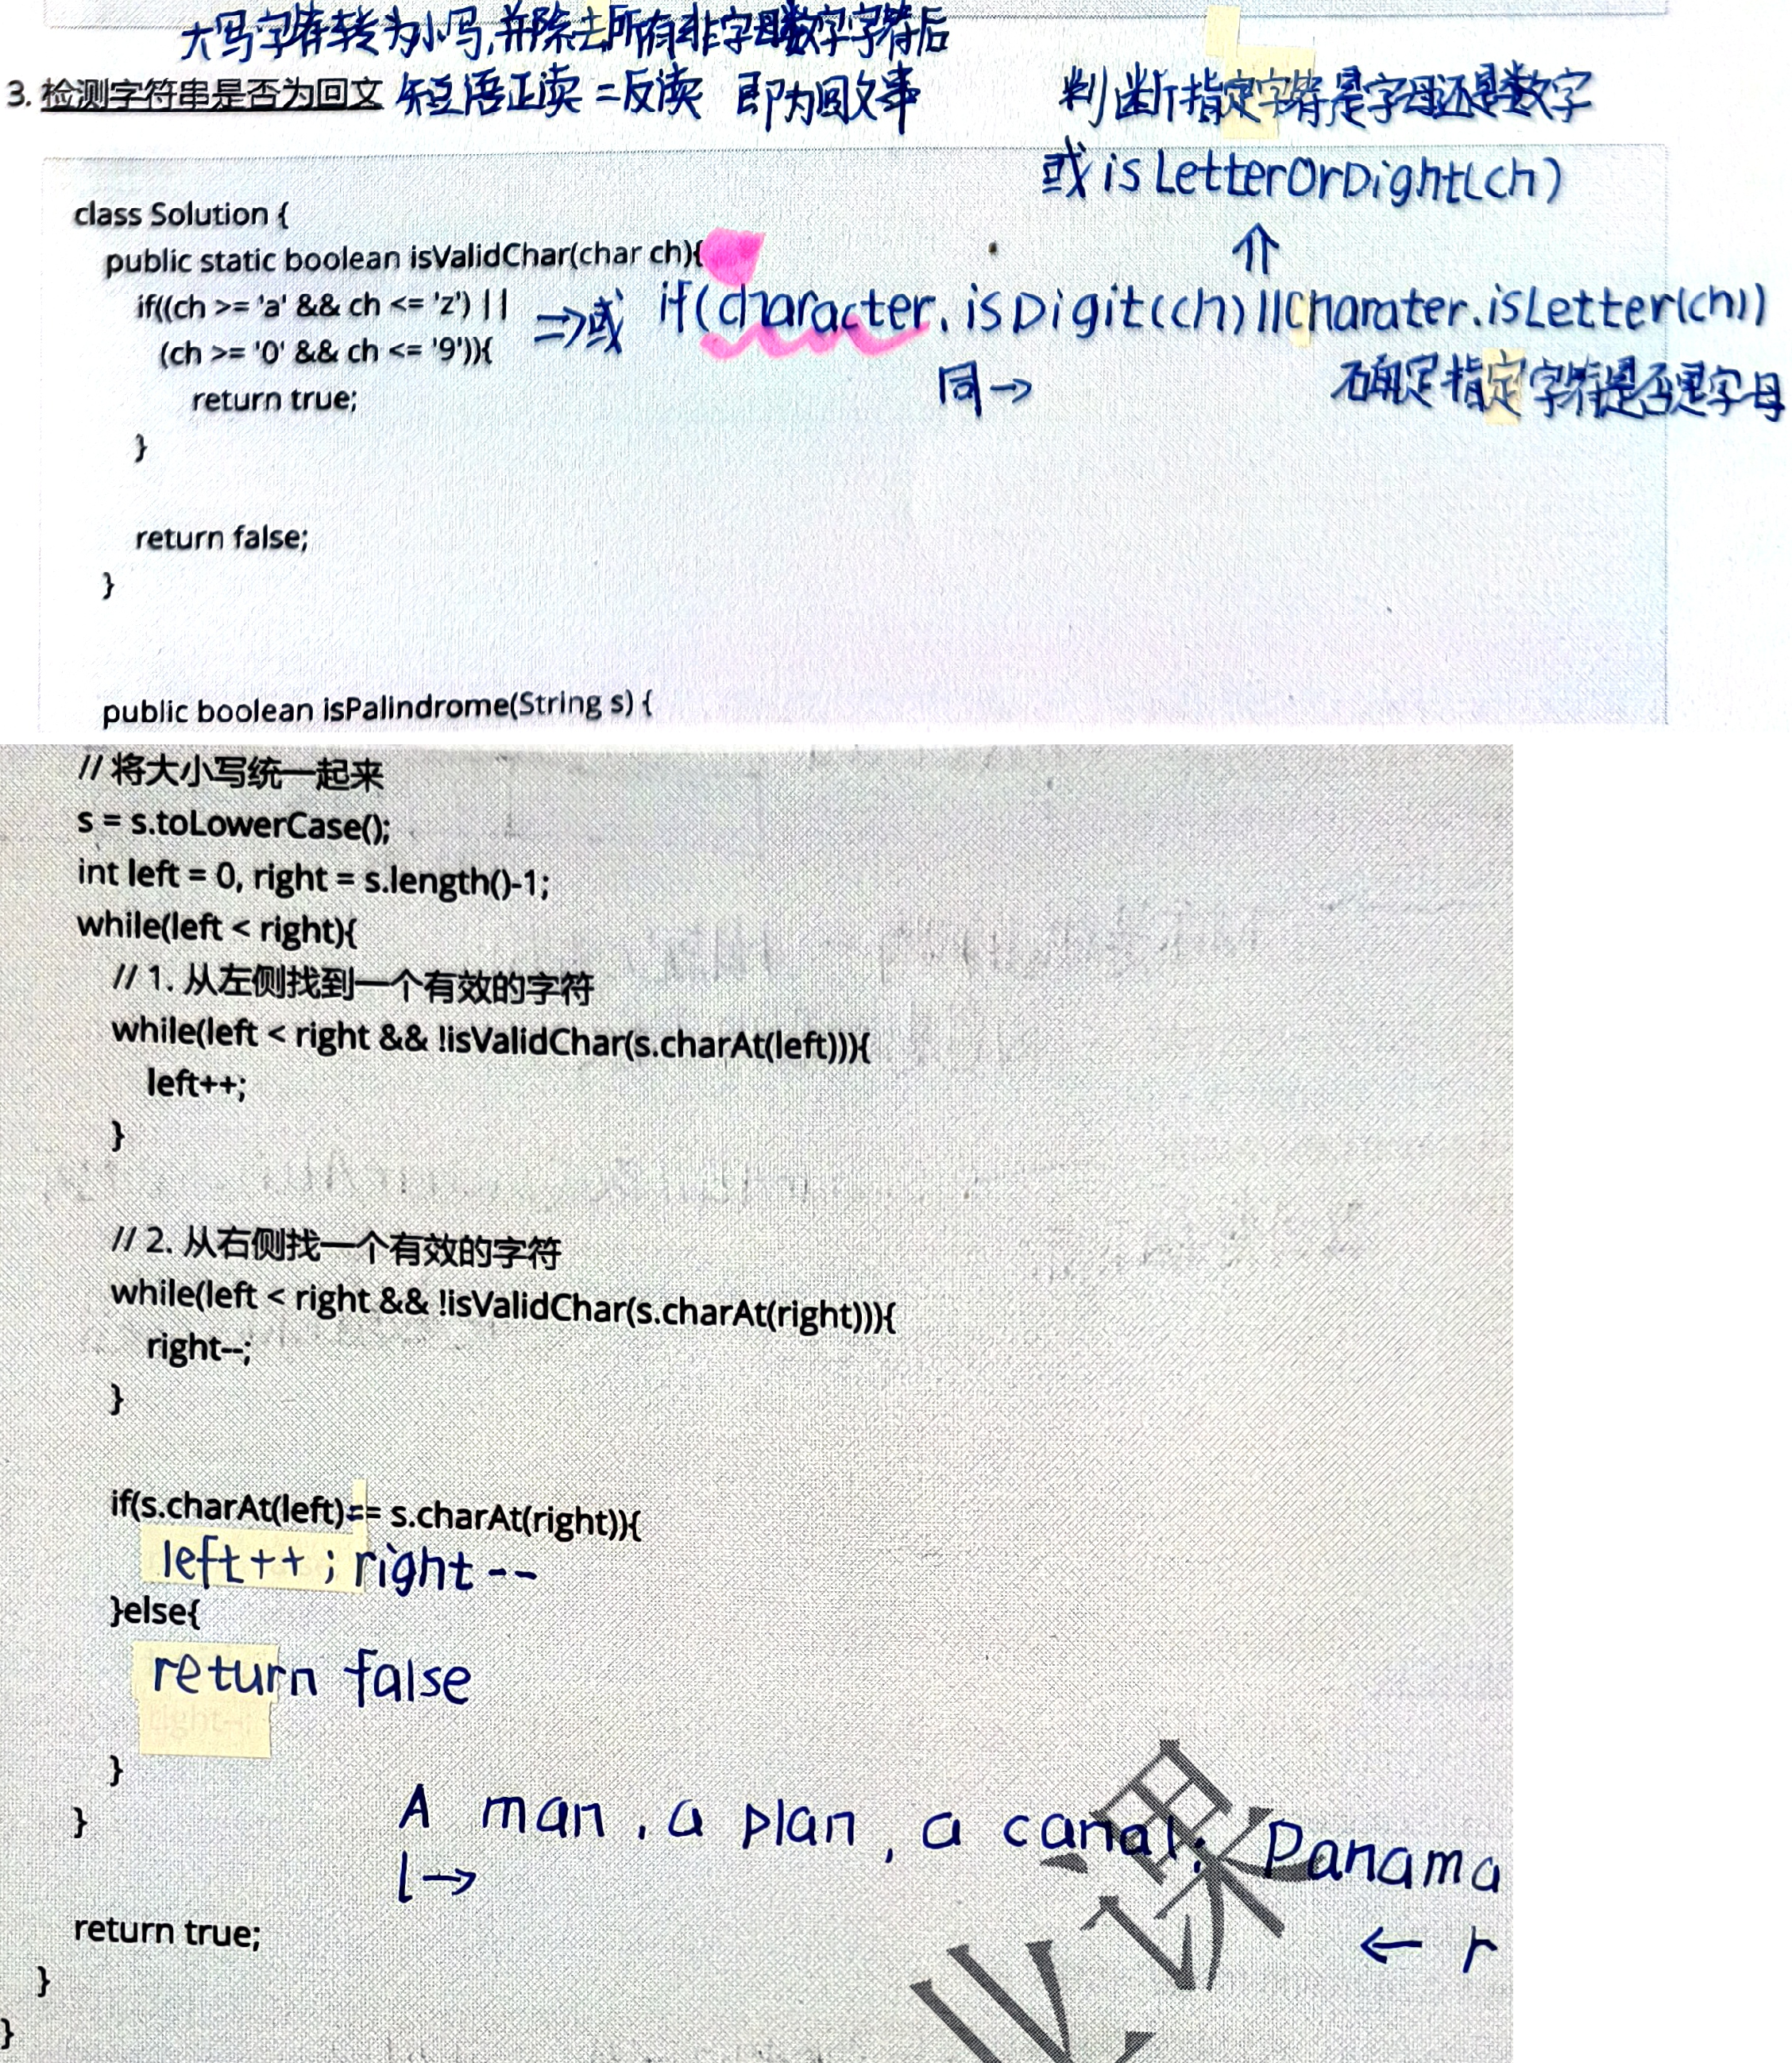 大写字符转为小写,并除去所有非字母数字字符后
3. 检测字符串是否为回文 短语正读=反读 即为回文串
判断指定字符是字母还是数字
或 isLetterOrDight(ch)
class Solution {
public static boolean isValidChar(char ch){
if((ch >= 'a' && ch <= 'z') || ⇒或 if(character.isDigit(ch)||Charater.isLetter(ch))
(ch >= '0' && ch <= '9')){
同→ 确定指定字符是否是字母
return true;
}
return false;
}
public boolean isPalindrome(String s) {
// 将大小写统一起来
s = s.toLowerCase();
int left = 0, right = s.length()-1;
while(left < right){
// 1. 从左侧找到一个有效的字符
while(left < right && !isValidChar(s.charAt(left))){
left++;
}
// 2. 从右侧找一个有效的字符
while(left < right && !isValidChar(s.charAt(right))){
right--;
}
if(s.charAt(left)== s.charAt(right)){
left++ ; right --
}else{
return false
right--;
}
}
A man, a plan, a canal: Panama
l→
return true;
← r
}
}
课